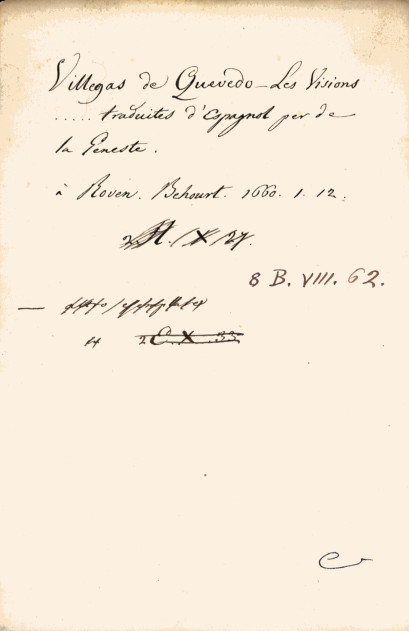 Villegas de Quevedo – Les Visions
..... traduites d'Espagnol per de
la Geneste.
à Roven. Behourt. 1660. 1. 12:
8 B. VIII. 62.
2 E. X. 33